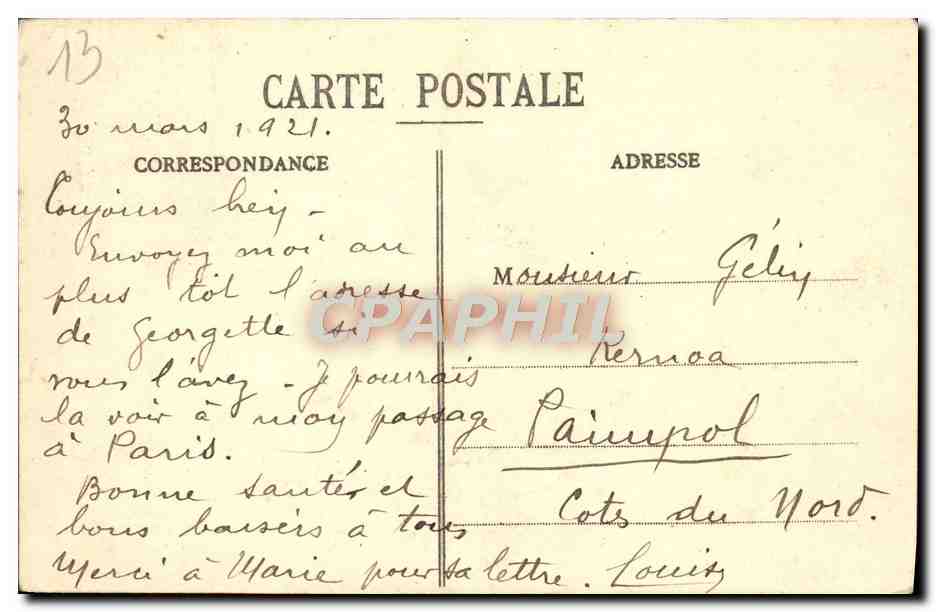 13
CARTE POSTALE
30 mars 1921.
CORRESPONDANCE
Toujours bien -
Envoyez moi au
plus tôt l'adresse
de Georgette si
vous l'avez - Je pourrais
la voir à mon passage
à Paris.
Bonne santé et
bons baisers à tous
Merci à Marie pour sa lettre. Louis
ADRESSE
Monsieur Gélin
Kernoa
Paimpol
Cotes du Nord.
CPAPHIL